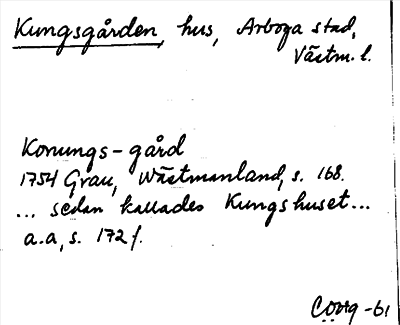 Kungsgården, hus, Arboga stad,
Västm. l.
Konungs-gård
1754 Grau, Wästmanland, s. 168.
... sedan kallades Kungshuset...
a.a, s. 172 f.
-61